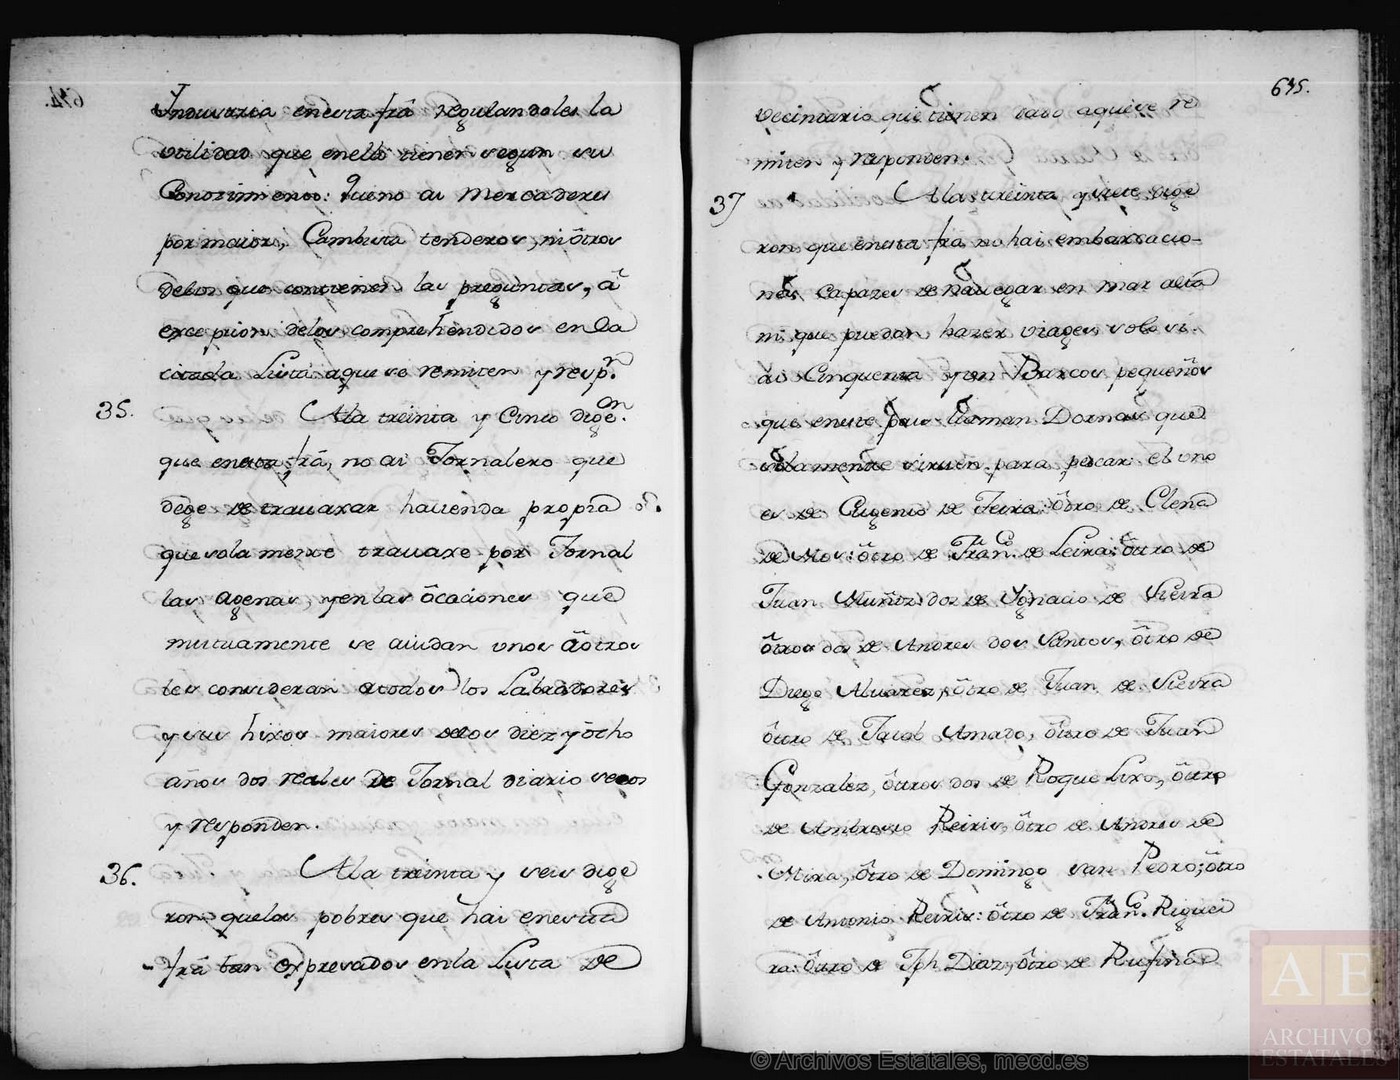 Industria enesta frâ regulandoles la
utilidad que enello tienen segun su
Conozimiento: Yueno ai Mercaderes
por maior, Cambista tenderos, ni ôtros
delos que contienen las preguntas, â
excepcion delos comprehendidos enla
citada Lista aque se remiten y resp.n
35. Ala treinta y Cinco dige.on
que enesta frâ, no ai Jornalero que
dege de travaxar hacienda propia
que sola mente travaxe por Jornal
las agenas, y en las ôcaciones que
mutuamente se aiudan unos âôtros
les consideran atodos los Labradores
y sus hixos maiores delos diez y ôcho
años dos reales de Jornal diario secos
y responden.
36. Ala treinta y seis dige
ron quelos pobres que hai enesta
frâ estan expresados enla Lista de
635.
vecindario que tienen dado aquise re
miten y responden.
37 Ala treinta y siete dige
ron que enesta frâ no hai embarracio-
nes Capazes de Navegar en mar alta
ni que puedan hazer viages solo si
âi Cinquenta y un Barcos pequeños
que eneste Pais llaman Dornas que
solamente sirven para pescar: el uno
es de Eugenio de Teira: ôtro de Elena
de Mos: ôtro de Fran.co de Leira: ôtro de
Juan Muñiz: dos de Ygnacio de Vieira
ôtros dos de Andres dos Santos, ôtro de
Diego Alvarez, ôtro de Juan de Vieira
ôtro de Jacob Amado, ôtro de Juan
Gonzalez, ôtros dos de Roque Lixo, ôtro
de Ambrosio Reiris, ôtro de Andres de
Mira, ôtro de Domingo san Pedro; ôtro
de Antonio Reiris: ôtro de Fran.co Riguei
ra: ôtro de Jph Diaz, ôtro de Rufina
AE
ARCHIVOS
ESTATALES
© Archivos Estatales, mecd.es